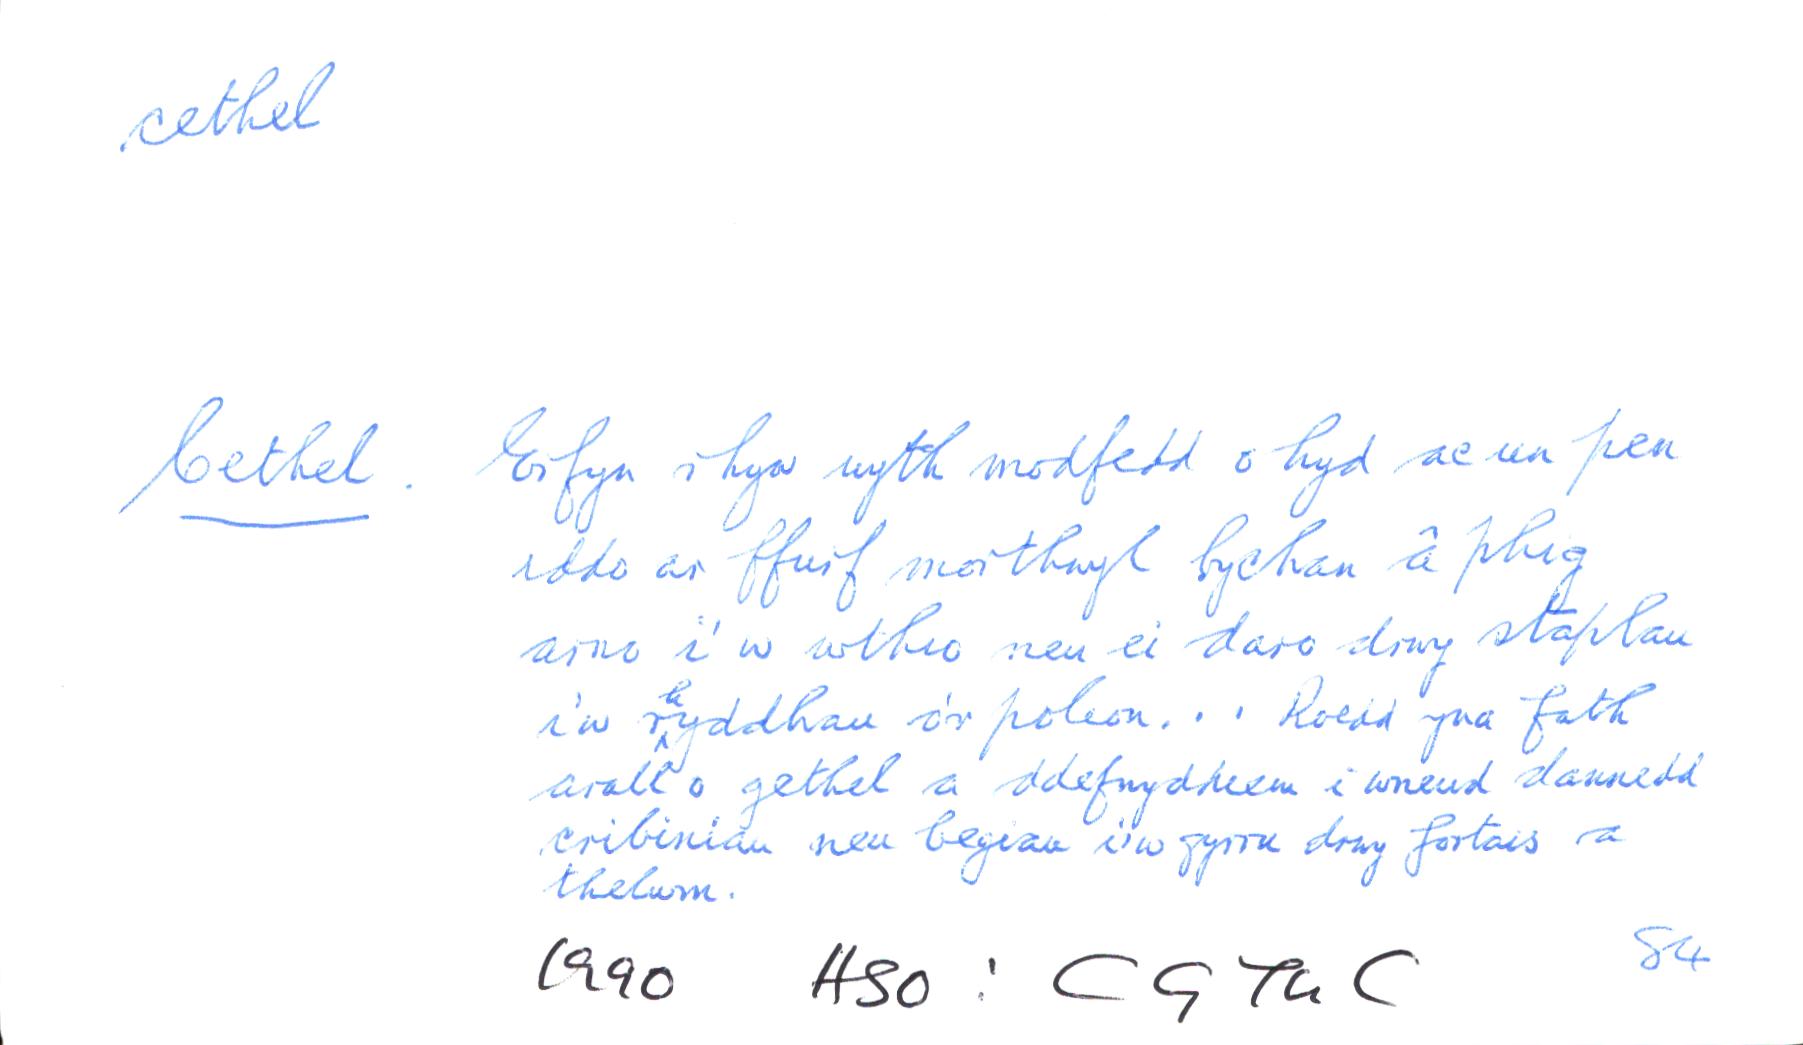 cethel
Cethel. Erfyn rhyw wyth modfedd o hyd ac un pen
iddo ar ffurf morthwyl bychan â phig
arno i'w wthio neu ei daro drwy staplau
i'w rhyddhau o'r poleon... Roedd yna fath
arall o gethel a ddefnyddiem i wneud dannedd
cribiniau neu begiau i'w gyrru drwy fortais a
thelwm.
1990 HSO: CGTUC 84